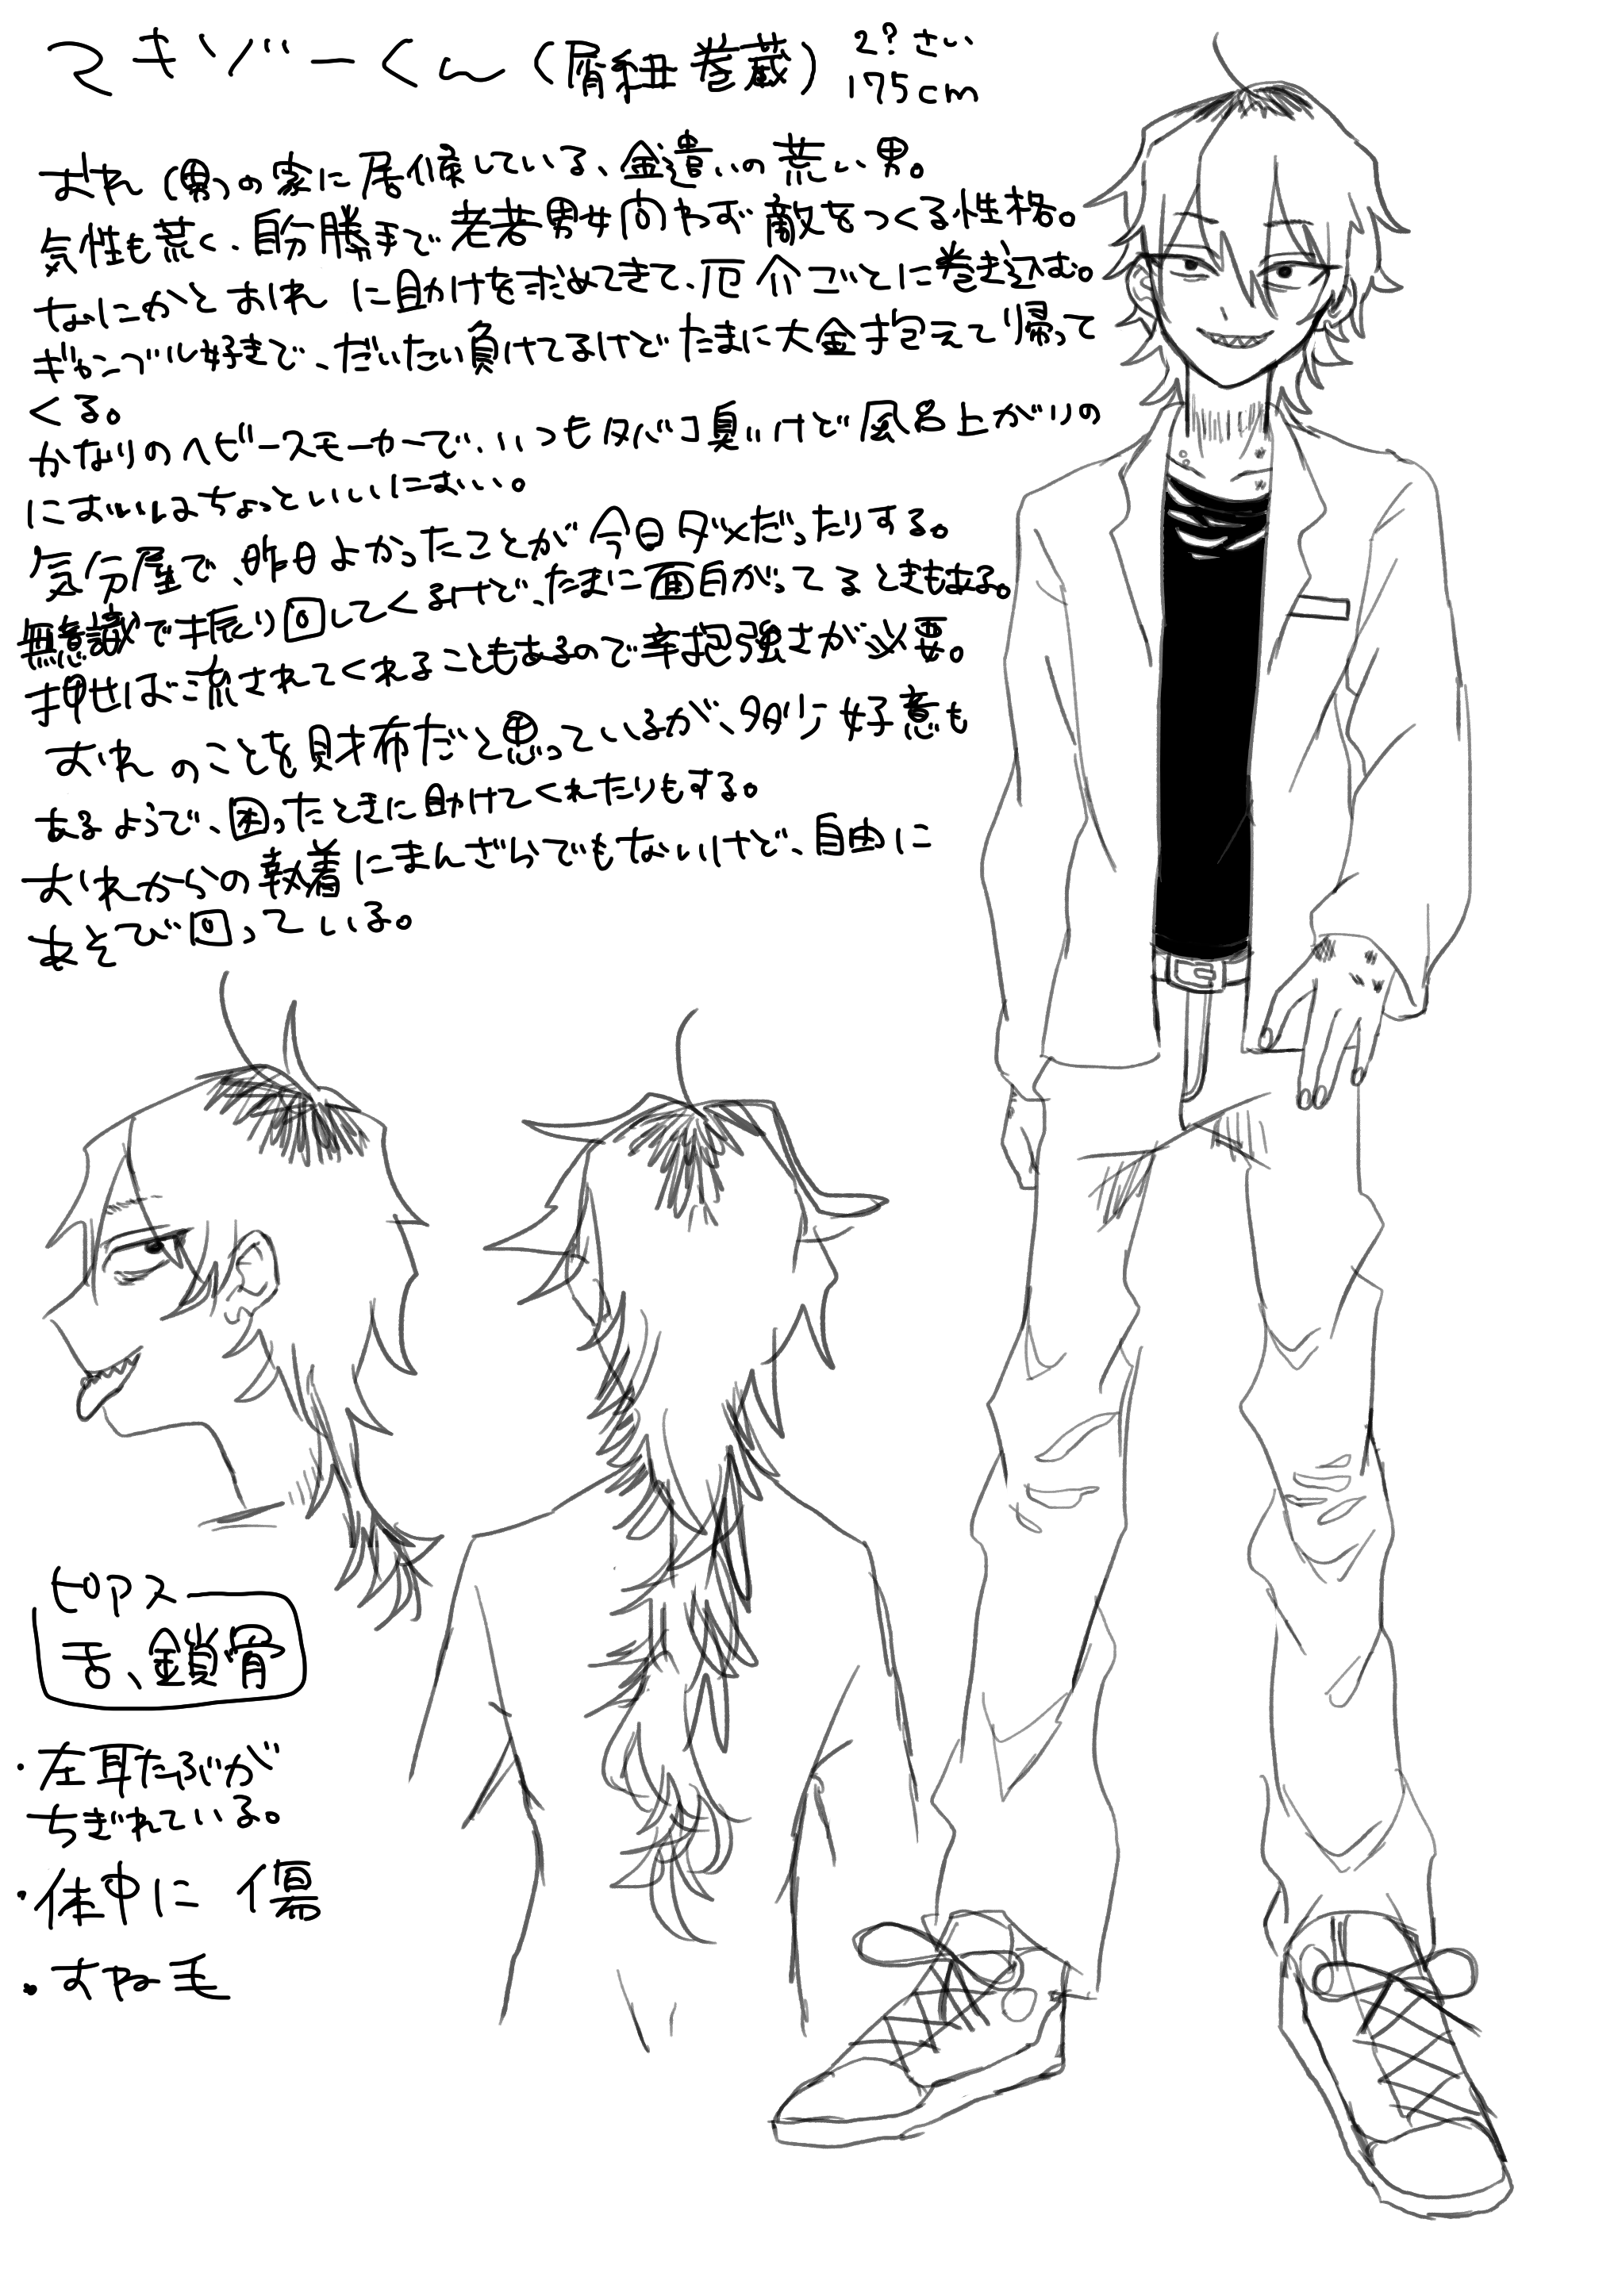 マキゾーくん(屑紐 巻蔵) 2?さい
175cm
おれ(男)の家に居候している、金遣いの荒い男。
気性も荒く、自分勝手で老若男女問わず敵をつくる性格。
なにかとおれに助けを求めてきて、厄介ごとに巻き込む。
ギャンブル好きで、だいたい負けてるけどたまに大金抱えて帰って
くる。
かなりのヘビースモーカーで、いつもタバコ臭いけど風呂上がりの
においはちょっといいにおい。
気分屋で、昨日よかったことが今日ダメだったりする。
無意識で振り回してくるけど、たまに面白がってるときもある。
押せば流されてくれることもあるので辛抱強さが必要。
おれのことを財布だと思っているが、多少好意も
あるようで、困ったときに助けてくれたりもする。
おれからの執着にまんざらでもないけど、自由に
あそび回っている。
ピアス
舌、鎖骨
・左耳たぶが
ちぎれている。
・体中に傷
・すね毛